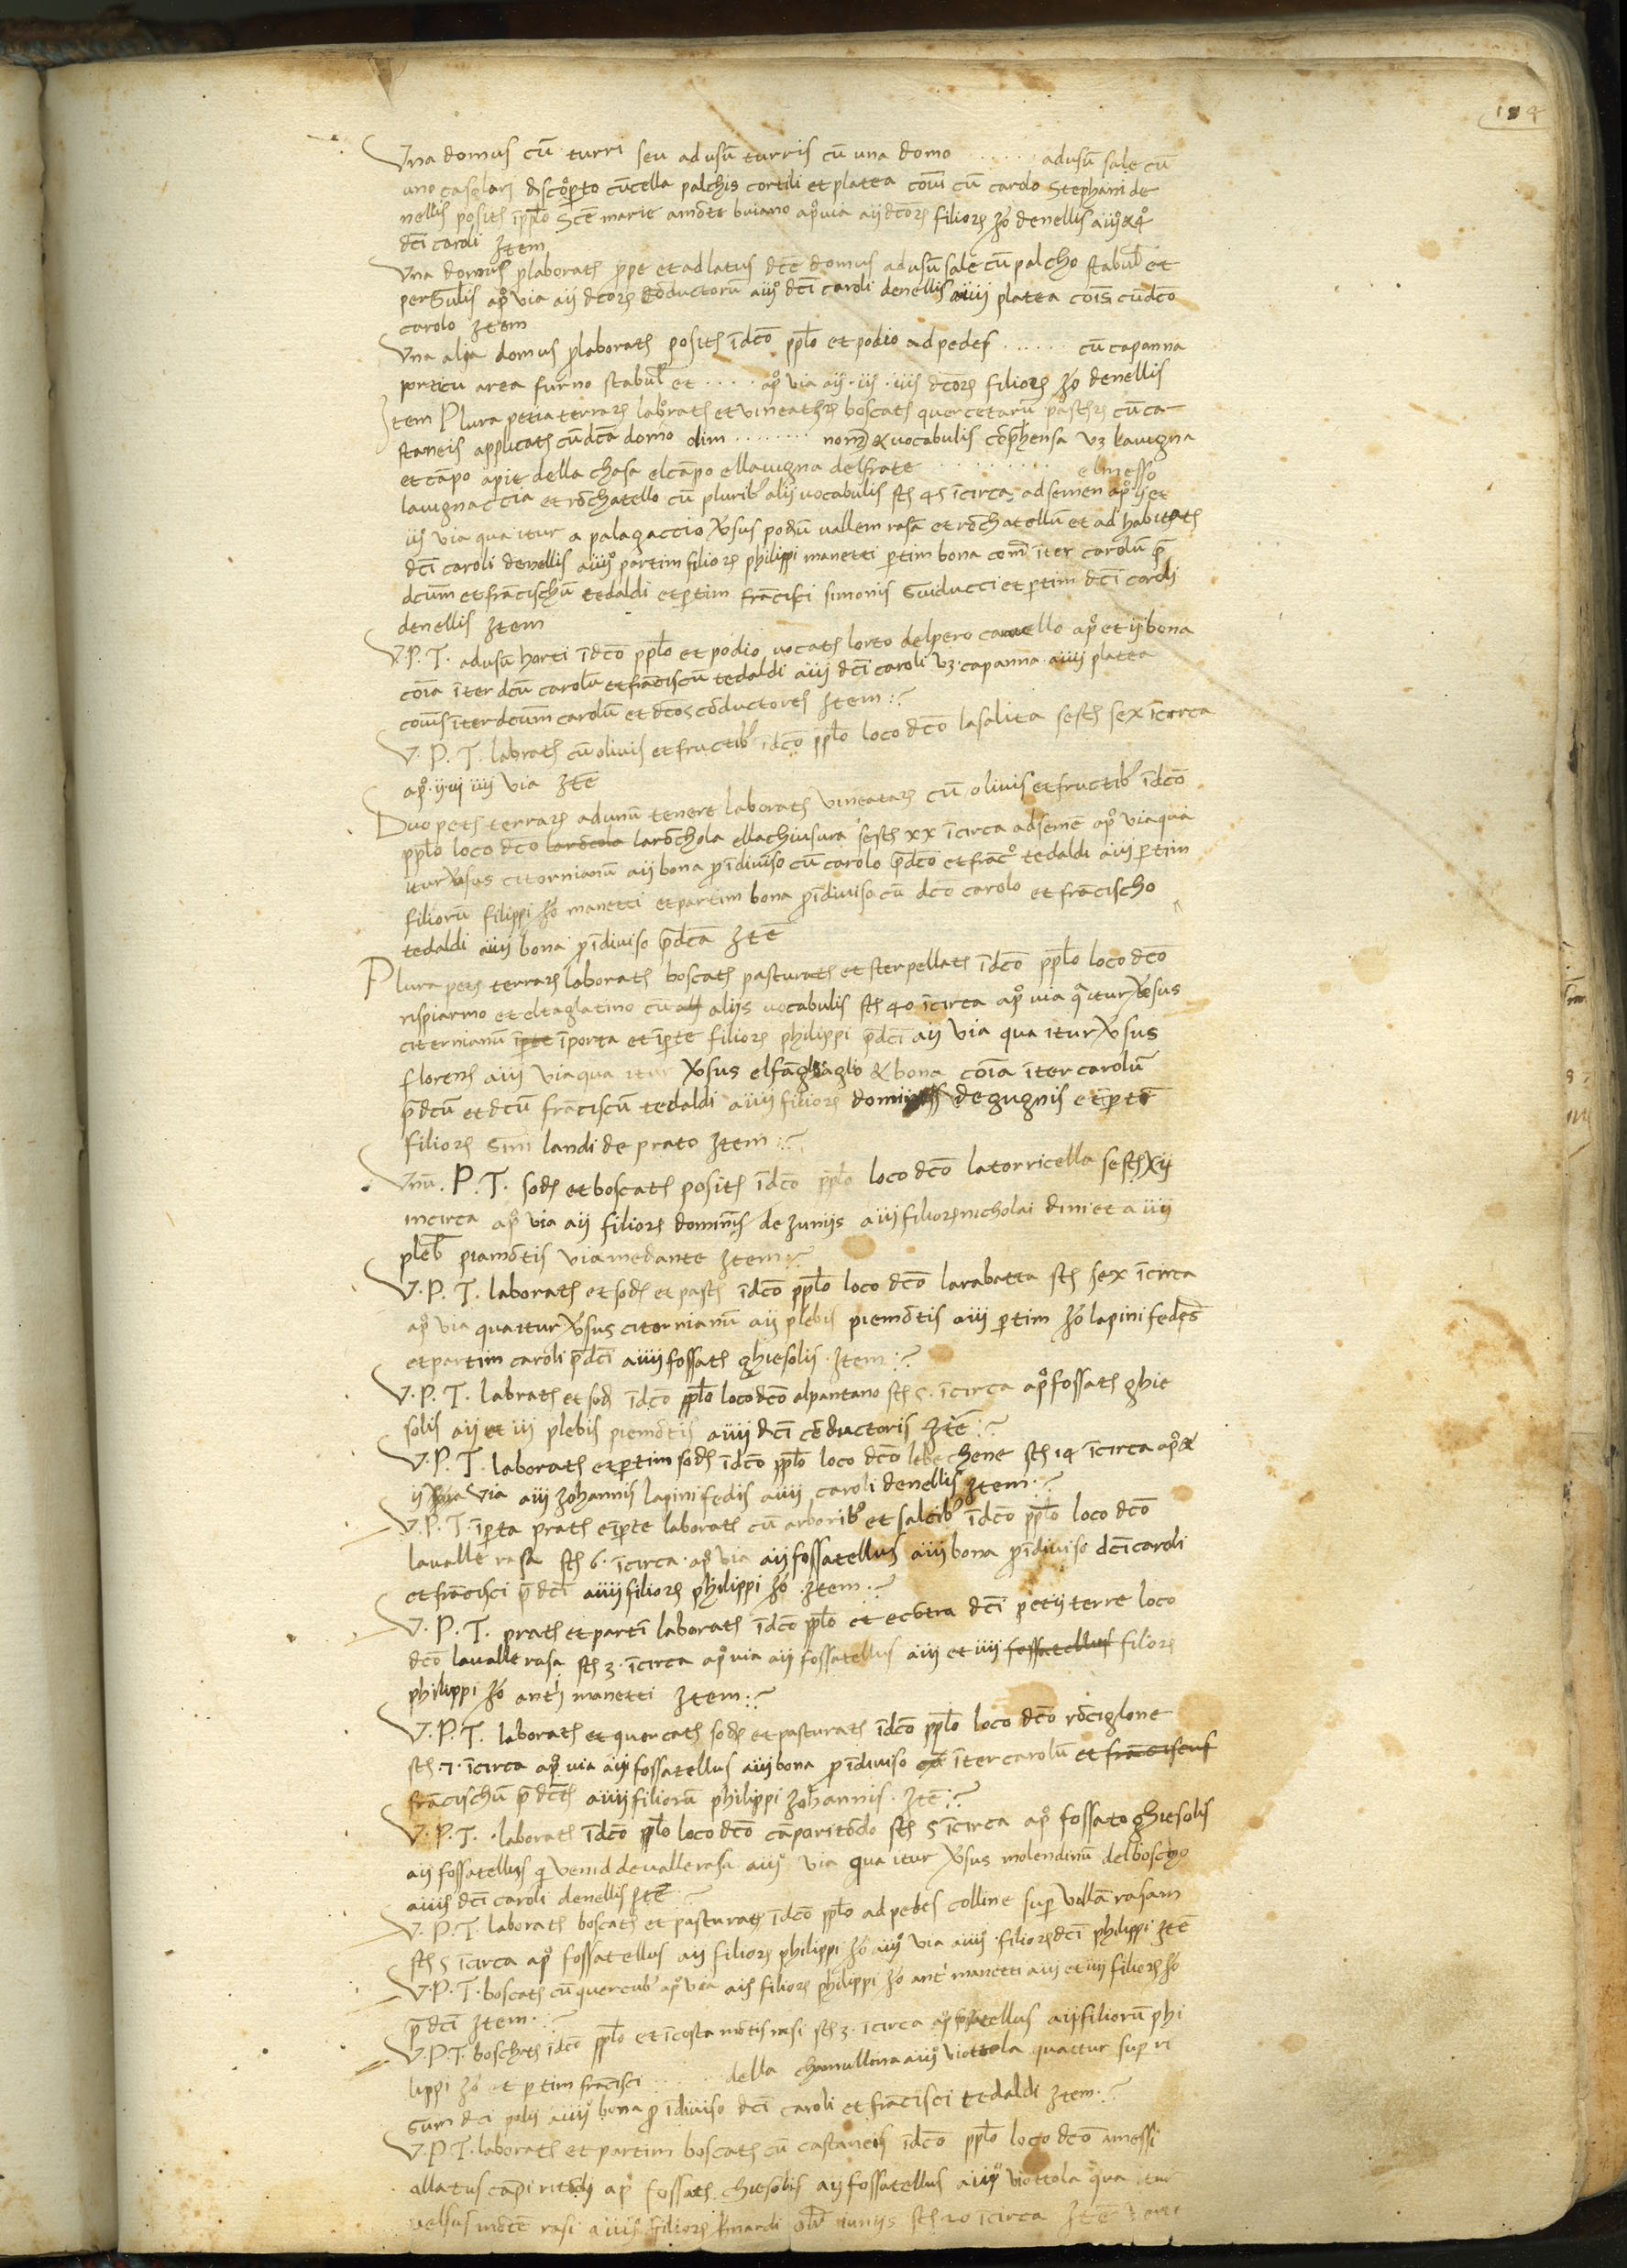 194
Una domus cū turri seu ad usū turris cū una domo ...... ad usū sale cū
uno casolari discop̄to cū cella palchis cortili et platea cōi cū carolo Stephani de
nellis posit̄ ī pp̄lo Scē marie amōte buiano ap° via aij dcōꝝ filioꝝ Zō denellis aiij° & 4°
dcī caroli Item
Una domus p laborat̄ prope et ad latus dcē domus ad usū sale cū palcho stabul̄ et
pergulis ap° via aij dcōꝝ cōductorū aiij° dcī caroli denellis aiiij platea cōis cū dcō
carolo Item
Una alia domus p laborat̄ posit̄ ī dcō pp̄lo et podio ad pedes ...... cū capanna
porticu area furno stabul̄ et ..... ap° via aij · iij · iiij dcōꝝ filioꝝ Zō denellis
Item Plura petia terraꝝ laborat̄ et vineat̄ boscat̄ quercetarū past̄ cū ca-
staneis applicat̄ cū dcā domo olim ........ & vocabulis vz lavigna
et cāpo apie della chasa el cāpo ella vigna del frate ......... el messo
la vignaccia et rōchatello cū plurib; alij vocabulis st̄ 45 īcirca ad semen ap° ij et
iij via qua itur a palagaccio v̄sus podiū vallem rasā et rōchatellū et ad habitat̄
dcī caroli denellis aiiij° partim filioꝝ philippi manetti p̄tim bona com̄ īter carolū p̄
dcūm et frācischū tedaldi et p̄tim frācisci simonis Guiducci et p̄tim dcī caroli
denellis Item
V. P. T. ad usū horti ī dcō pp̄lo et podio vocat̄ lorto del pero ap° et ij bona
cōia īter dcū carolū et frāciscū tedaldi aiij dcī caroli vz. capanna aiiij platea
cōuis īter dcūm carolū et dcōs cōductores Item
V. P. T. labrat̄ cū olivis et fructib; ī dcō pp̄lo loco dcō la salita sest̄ sex īcirca
ap°. ij iij iiij via Itē
Duo pet̄ terraꝝ ad unū tenere laborat̄ vineataꝝ cū olivis et fructib; ī dcō
pp̄lo loco dcō larōcola larōchola ella chiusura sest̄ xx īcirca ad semē ap° via qua
itur v̄sus citornianū aij bona p īdiviso cū carolo p̄dcō et frāc° tedaldi aiij p̄tim
filiorū filippi Zō manetti et partim bona p īdiviso cū dcō carolo et frācischo
tedaldi aiiij bona p īdiviso p̄dcā Itē
Plura pet̄ terraꝝ laborat̄ boscat̄ pasturat̄ et sterpellat̄ ī dcō pp̄lo loco dcō
rispiarmo et el taglatino cū ali aliis vocabulis st̄ 40 īcirca ap° via q̄ itur v̄sus
citernianū īp̄te īporta et īp̄te filioꝝ philippi p̄dcī aij via qua itur v̄sus
florent̄ aiij via qua itur v̄sus el & bona cōia īter carolū
p̄dcū et dcū frāciscū tedaldi aiiij filioꝝ de gugnis et īp̄te
filioꝝ landi de prato Item
Unū. P. T. sod̄ et boscat̄ posit̄ ī dcō pp̄lo loco dcō la torricella sest̄ xij
incirca ap° via aij filioꝝ de zuniis aiij filioꝝ nicholai dini et a iiij
pleb̄ piamōtis via mediante Item
V. P. T. laborat̄ et sod̄ et past̄ ī dcō pp̄lo loco dcō larabatta st̄ sex īcirca
ap° via qua itur v̄sus citornianū aij plebis piemōtis aiij p̄tim Zō lapini
et partim caroli p̄dcī aiiij fossat̄ ghiesolis · Item
V. P. T. labrat̄ et sod̄ ī dcō pp̄lo loco dcō al pantano st̄ 5. īcirca ap° fossat̄ ghie
solis aij et iij plebis piemōtis aiiij dcī cōductoris Itē
V. P. T. laborat̄ et p̄tim sod̄ ī dcō pp̄lo loco dcō lebechene st̄ 14 īcirca ap° &
ij via aiij Zohannis lapini fedis aiiij caroli denellis Item
V. P. T. īp̄ta prat̄ e īp̄te laborat̄ cū arborib; et salcib; ī dcō pp̄lo loco dcō
lavalle rasa st̄ 6. īcirca. ap° via aij fossatellus aiij bona p īdiviso dcī caroli
et frācisci p̄dcī aiiij filioꝝ philippi Zō. Item
V. P. T. prat̄ et partī laborat̄ ī dcō pp̄lo et ecōtra dcī petij terre loco
dcō lavalle rasa st̄ 3. īcirca ap° via aij fossatellus aiij et iiij fossatellus filioꝝ
philippi Zō manetti Item
V. P. T. laborat̄ et quercat̄ sod̄ et pasturat̄ ī dcō pp̄lo loco dcō rōciglone
st̄. 7. īcirca ap° via aij fossatellus aiij bona p īdiviso īter carolū et frāciscus
frācischū p̄dct̄ aiiij filiorū philippi Zohannis. Itē
V. P. T. laborat̄ ī dcō pp̄lo loco dcō cāporitōdo st̄ 5 īcirca ap° fossato ghiesolis
aij fossatellus q̄ venid de valle rasa aiij° via qua itur v̄sus molendinū del boscho
aiiij dcī caroli denellis Itē
V. P. T. laborat̄ boscat̄ et pasturat̄ ī dcō pp̄lo ad pedes colline sup̄ vallā rasam
st̄ 5 īcirca ap° fossatellus aij filioꝝ philippi Zō aiij° via aiiij° filioꝝ dcī philippi Itē
V. P. T. boscat̄ cū quercub; ap° via aij filioꝝ philippi Zō manetti aiij et iiij filioꝝ Zō
p̄dcī Item
V. P. T. boschat̄ ī dcō pp̄lo et ī costa mōtis rasi st̄ 3. īcirca ap° fossatellus aij filiorū phi
lippi Zō et p̄tim frācisci ...... della aiij° viottola qua itur sup̄
dcī aiiij° bona p īdiviso dcī caroli et frācisci tedaldi Item
V. P. T. laborat̄ et partim boscat̄ cū castaneis ī dcō pp̄lo loco dcō amessi
allatus cāpi ritōdi ap° fossat̄ ghiesolis aij fossatellus aiij° viottola qua itur
velsus mōte rasi aiiij filioꝝ st̄ 20 īcirca Itē